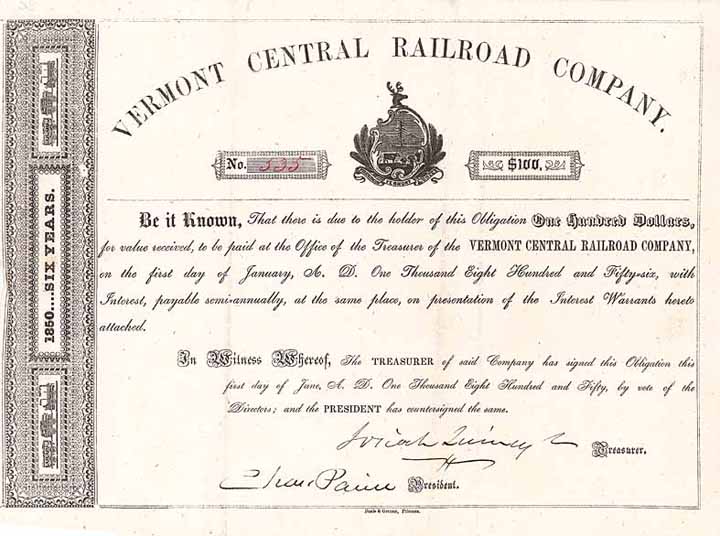 VERMONT CENTRAL RAILROAD COMPANY.
No. 535
$100,
VERMONT
Be it Known, That there is due to the holder of this Obligation One Hundred Dollars,
for value received, to be paid at the Office of the Treasurer of the VERMONT CENTRAL RAILROAD COMPANY,
on the first day of January, A. D. One Thousand Eight Hundred and Fifty-six, with
Interest, payable semi-annually, at the same place, on presentation of the Interest Warrants hereto
attached.
In Witness Whereof, The TREASURER of said Company has signed this Obligation this
first day of June, A. D. One Thousand Eight Hundred and Fifty, by vote of the
Directors; and the PRESIDENT has countersigned the same.
Josiah Quincy Jr Treasurer.
Chas Paine President.
1850....SIX YEARS.